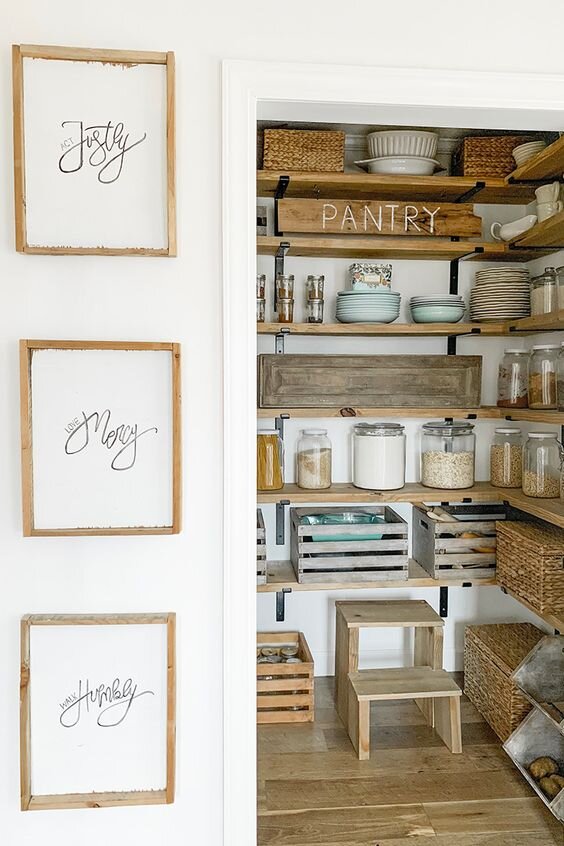 ACT Justly
LOVE Mercy
WALK Humbly
PANTRY